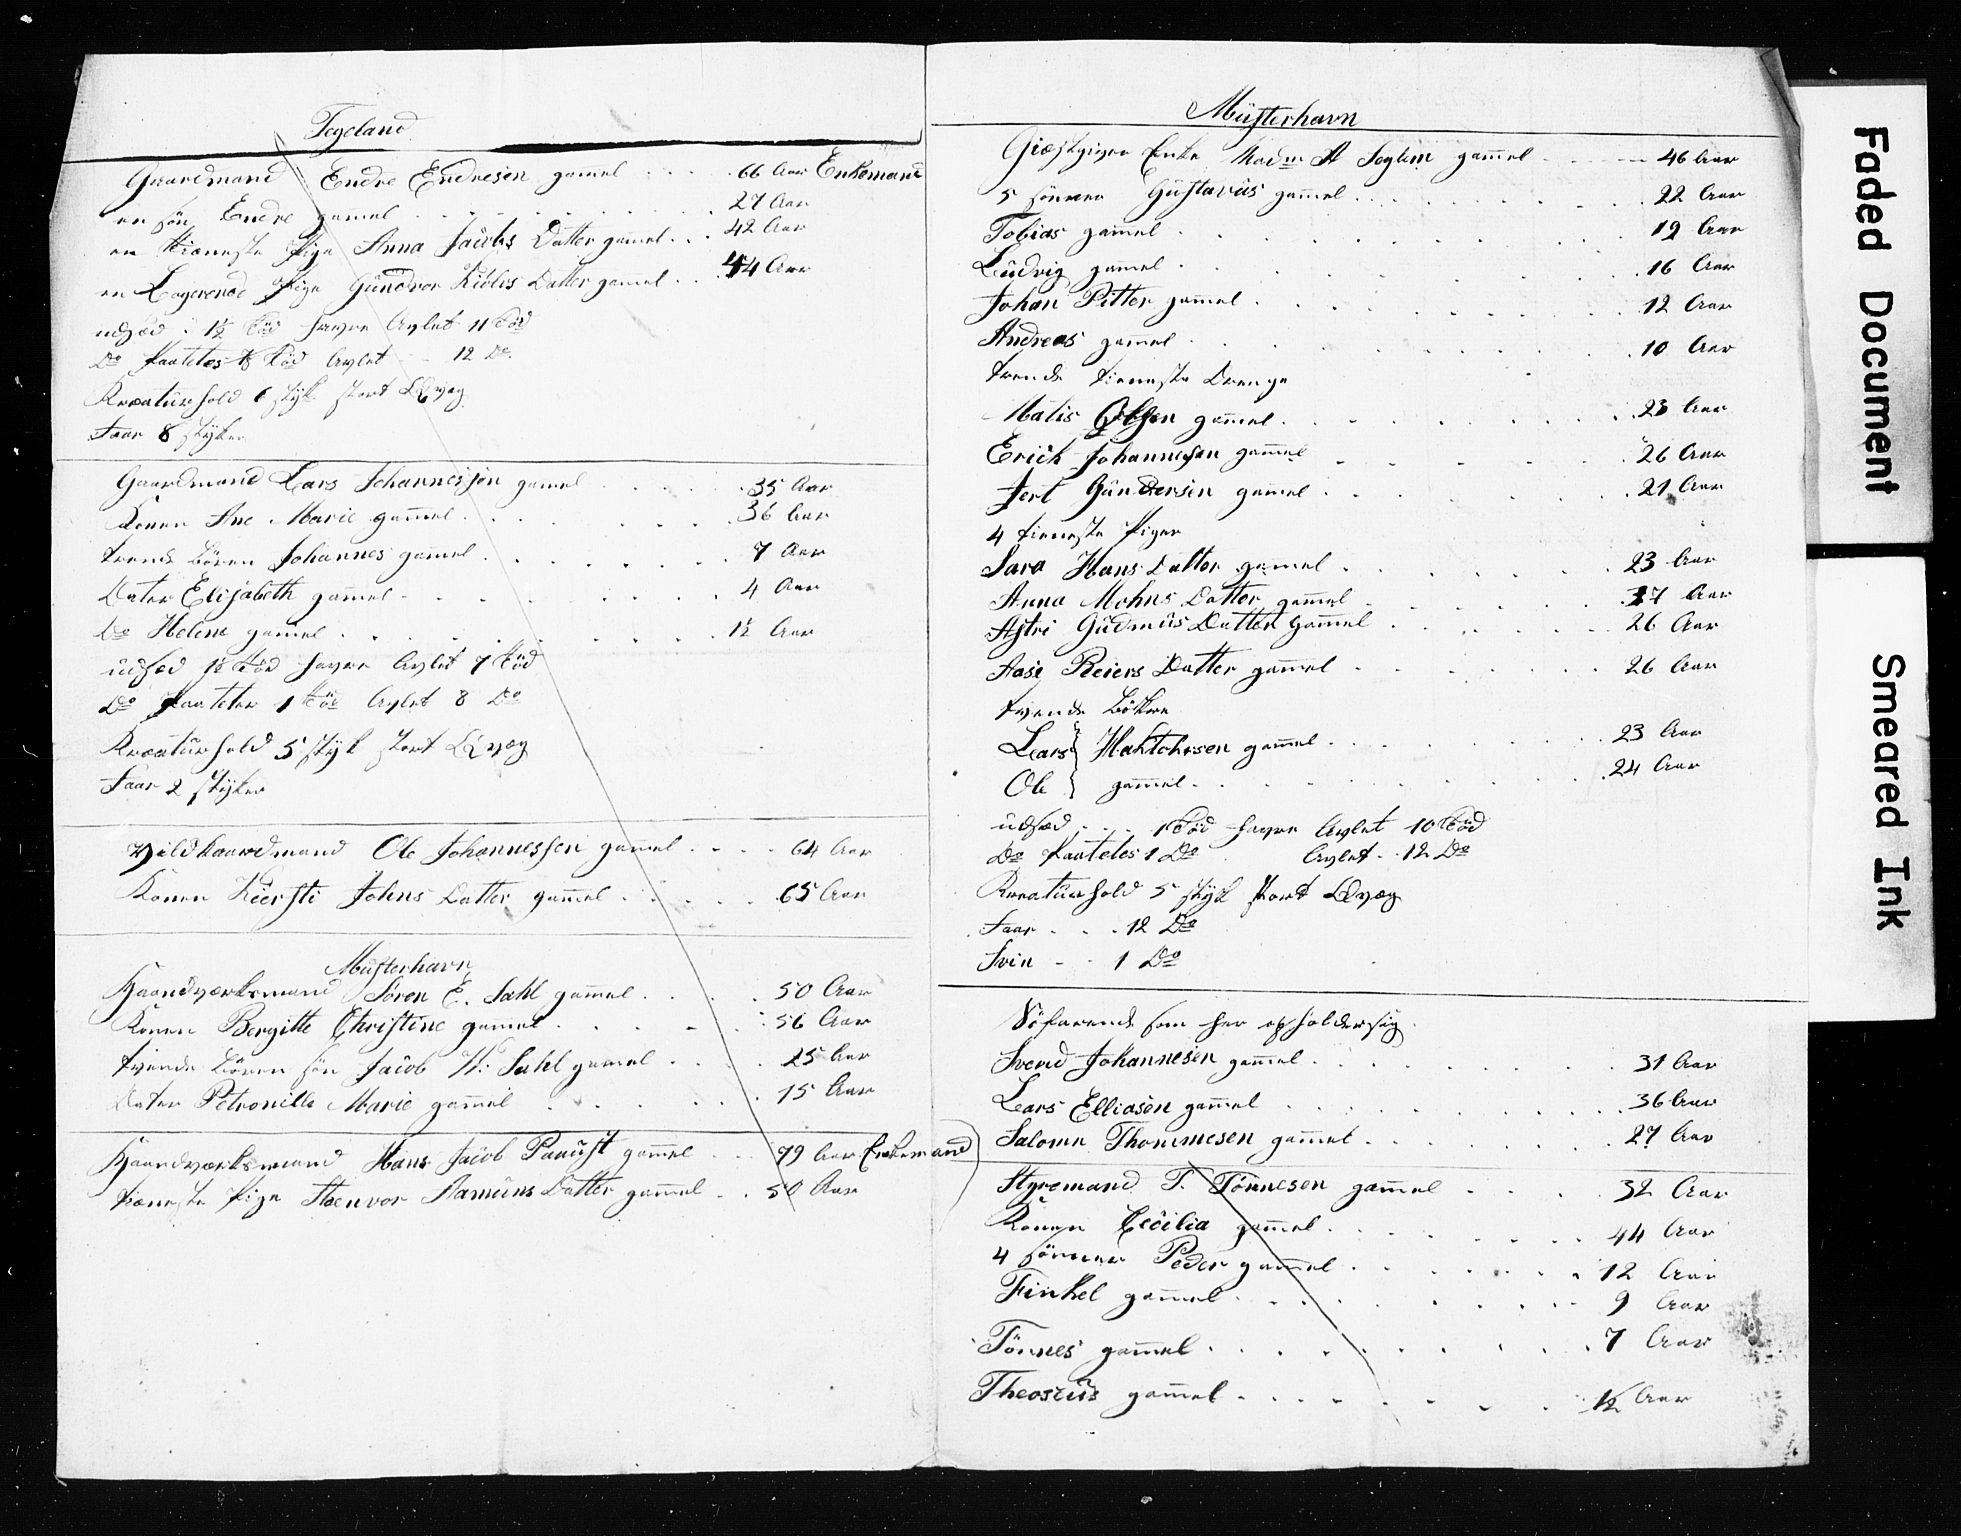 Tegeland
Gaardmand Endre Endresen gam̄el . . . . 66 Aar Enkemand
en sön Endre gam̄el . . . . 27 Aar
en tieneste Pige Anna Jacobs Datter gam̄el . . . 42 Aar
en Logerende Pige Gundvor Datter gam̄el . . 44 Aar
udsæd 1½ Töd havre Avlet 11 Töd
Do Poteter Töd Avlet 12 Do
Kreaturhold 6 styk stort Qvæg
Faar 8 styker
Gaardmand Lars Johannessen gamel . . . . 35 Aar
Konen Ane Marie gam̄el . . . . 36 Aar
trende Bören Johannes gam̄el . . . . 7 Aar
Dater Elisabeth gam̄el . . . . 4 Aar
Do Helene gam̄el . . . . 1½ Aar
udsæd 1½ Töd havre Avlet 7 Töd
Do Poteter 1 Töd Avlet 8 Do
Kreaturhold 5 styk stort Qvæg
Faar 2 styker
Ole Johannessen gam̄el . . . . 64 Aar
Konen Kiersti Johns Datter gam̄el . . . . 65 Aar
Musterhavn
Haandværksmand Sören E. Sahl gam̄el . . . . 50 Aar
Konen Bergitte Christine gam̄el . . . . 56 Aar
tvende Bören sön Jacob H: Sahl gam̄el . . . . 25 Aar
Dater Petronille Marie gam̄el . . . . 15 Aar
Haandværksmand Hans Jacob gam̄el . . . 79 Aar Enkemand
tieneste Pige Datter gam̄el . . 50 Aar
Musterhavn
Giæstgiver Enke Madm A Seglem gam̄el . . . . 46 Aar
5 sönner Gustavus gam̄el . . . . 22 Aar
Tobias gam̄el . . . . 19 Aar
Ludvig gam̄el . . . . 16 Aar
Johan Pitter gam̄el . . . . 12 Aar
Andreas gam̄el . . . . 10 Aar
trende tieneste Drenge
Matis gam̄el . . . . 23 Aar
Erick Johannesen gam̄el . . . . 26 Aar
Jert Gundersen gam̄el . . . . 21 Aar
4 tieneste Piger
Sara Hans Datter gam̄el . . . . 23 Aar
Anna Mohns Datter gam̄el . . . . 37 Aar
Astri Gudmus Datter gam̄el . . . . 26 Aar
Aase Reiers Datter gam̄el . . . . 26 Aar
tvende Bökere
Lars } gam̄el . . . . 23 Aar
Ole } gam̄el . . . . 24 Aar
udsæd . . . 1 Töd havre Avlet 10 Töd
Do Poteter 1 Do Avlet . 12 Do
Kreaturhold 5 styk stort Qvæg
Faar . . . 12 Do
Svin - - 1 Do
Söfarende som her opholder sig
Svend Johannesen gam̄el . . . . 31 Aar
Lars Elliasen gam̄el . . . . 36 Aar
Salomn Thommesen gam̄el . . . . 27 Aar
Styremand T. Tönnesen gam̄el . . . . 32 Aar
Konen Cecilia gam̄el . . . . 44 Aar
4 sönner Peder gam̄el . . . . 12 Aar
Finkel gam̄el . . . . 9 Aar
Tönnes gam̄el . . . . 7 Aar
gam̄el . . . . ½ Aar
Faded Document
Smeared Ink